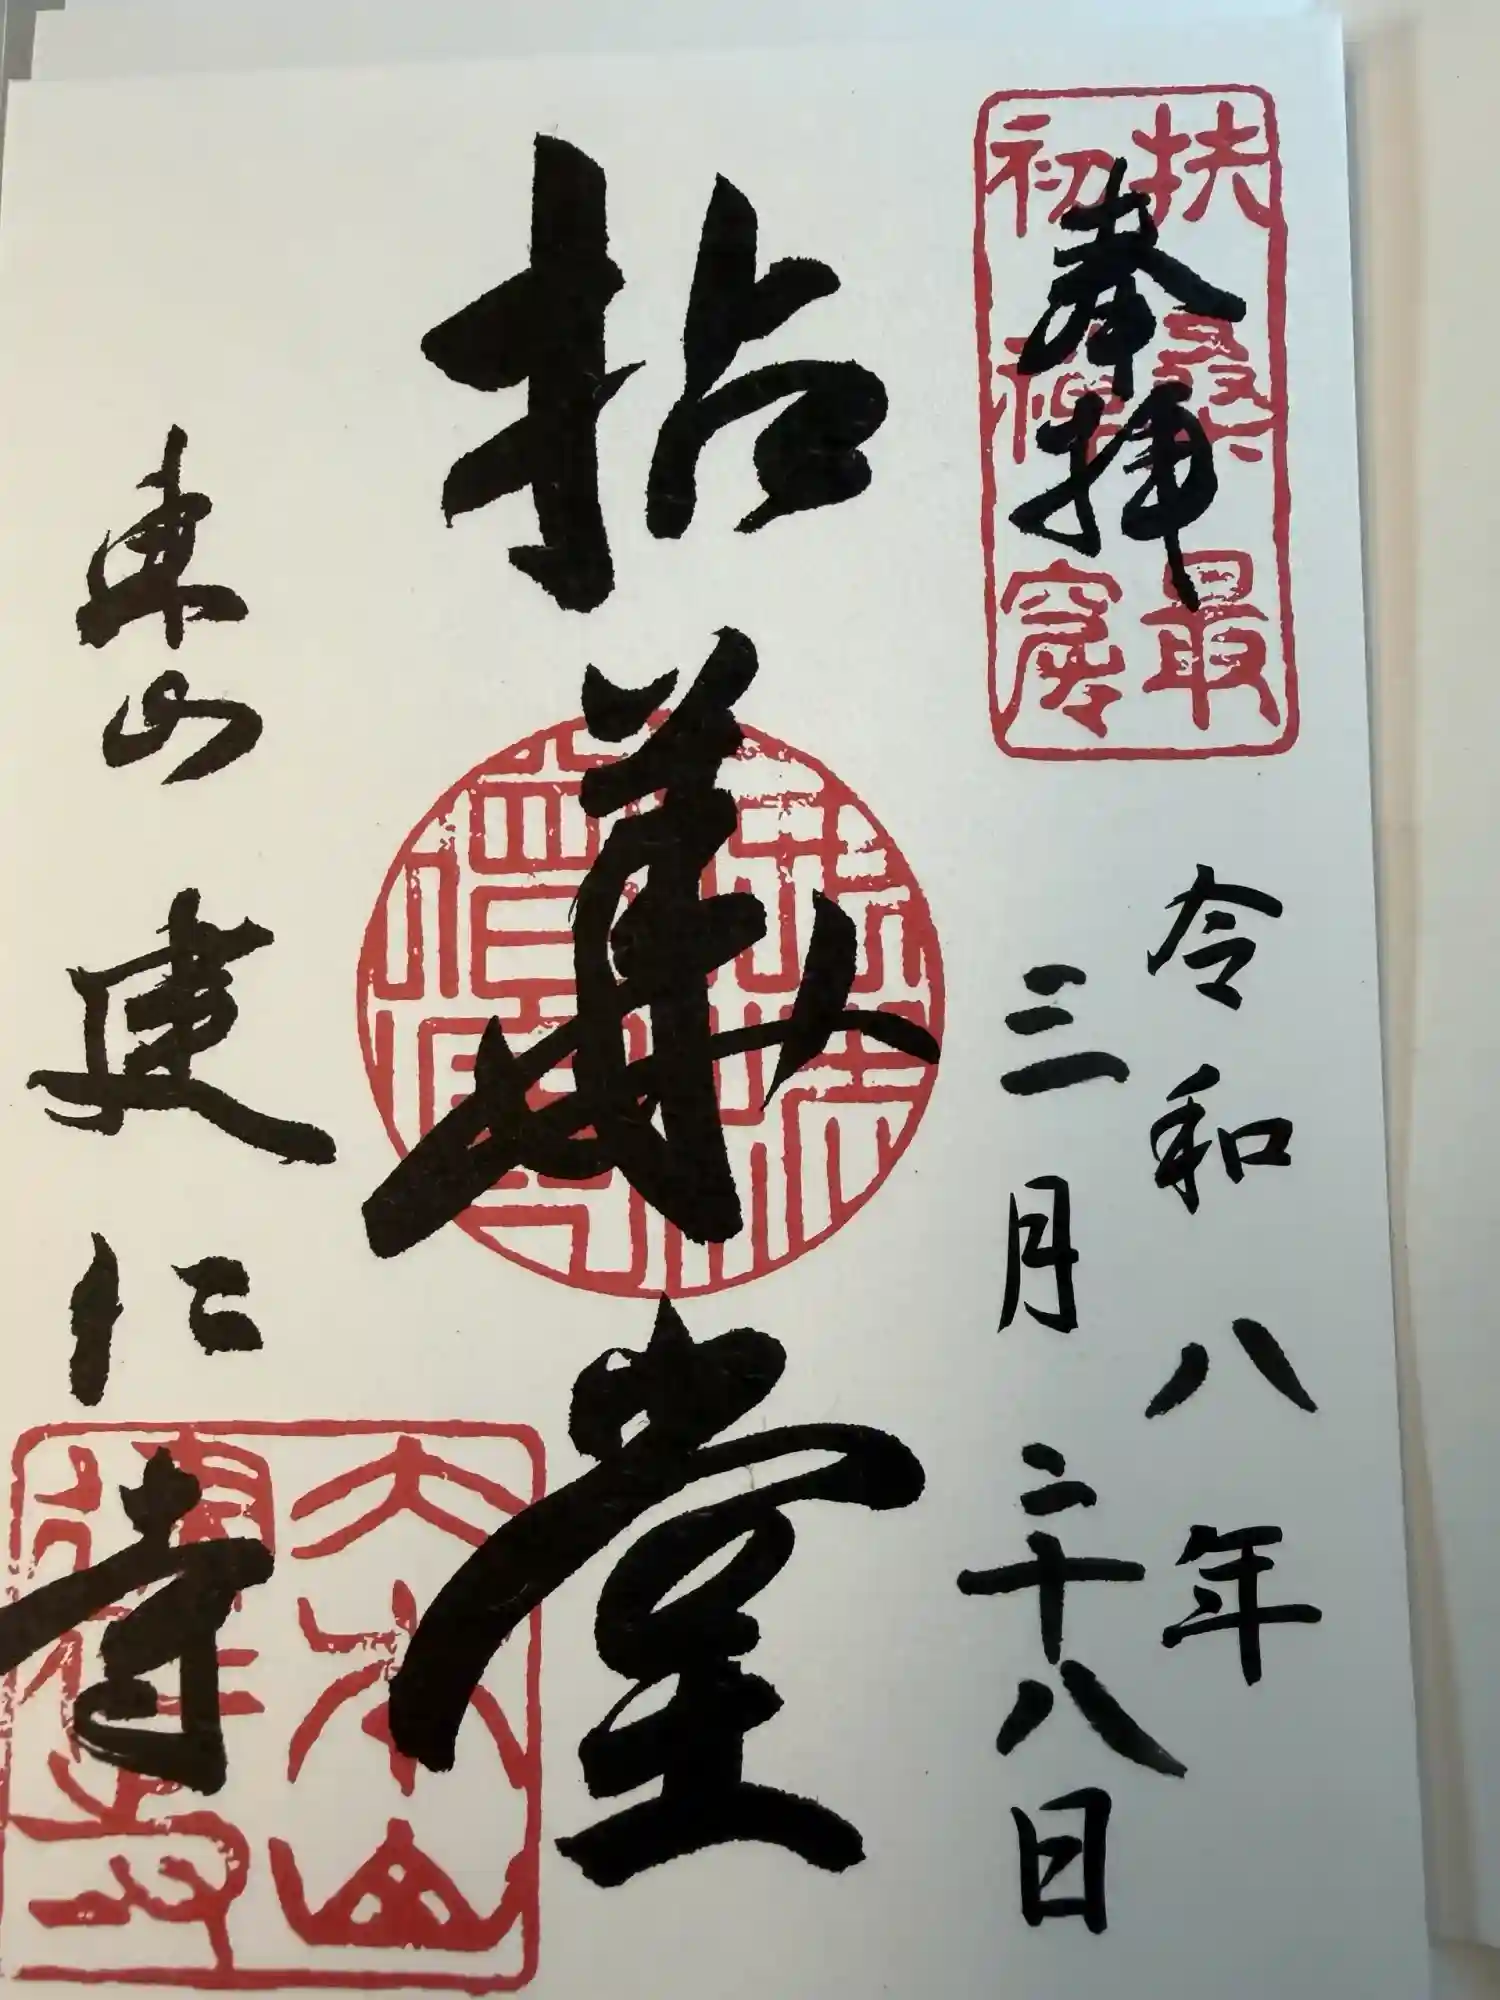 奉拝
扶桑最
初禅窟
令和八年
三月二十八日
拈華堂
東山建仁寺
大本山
建仁寺印